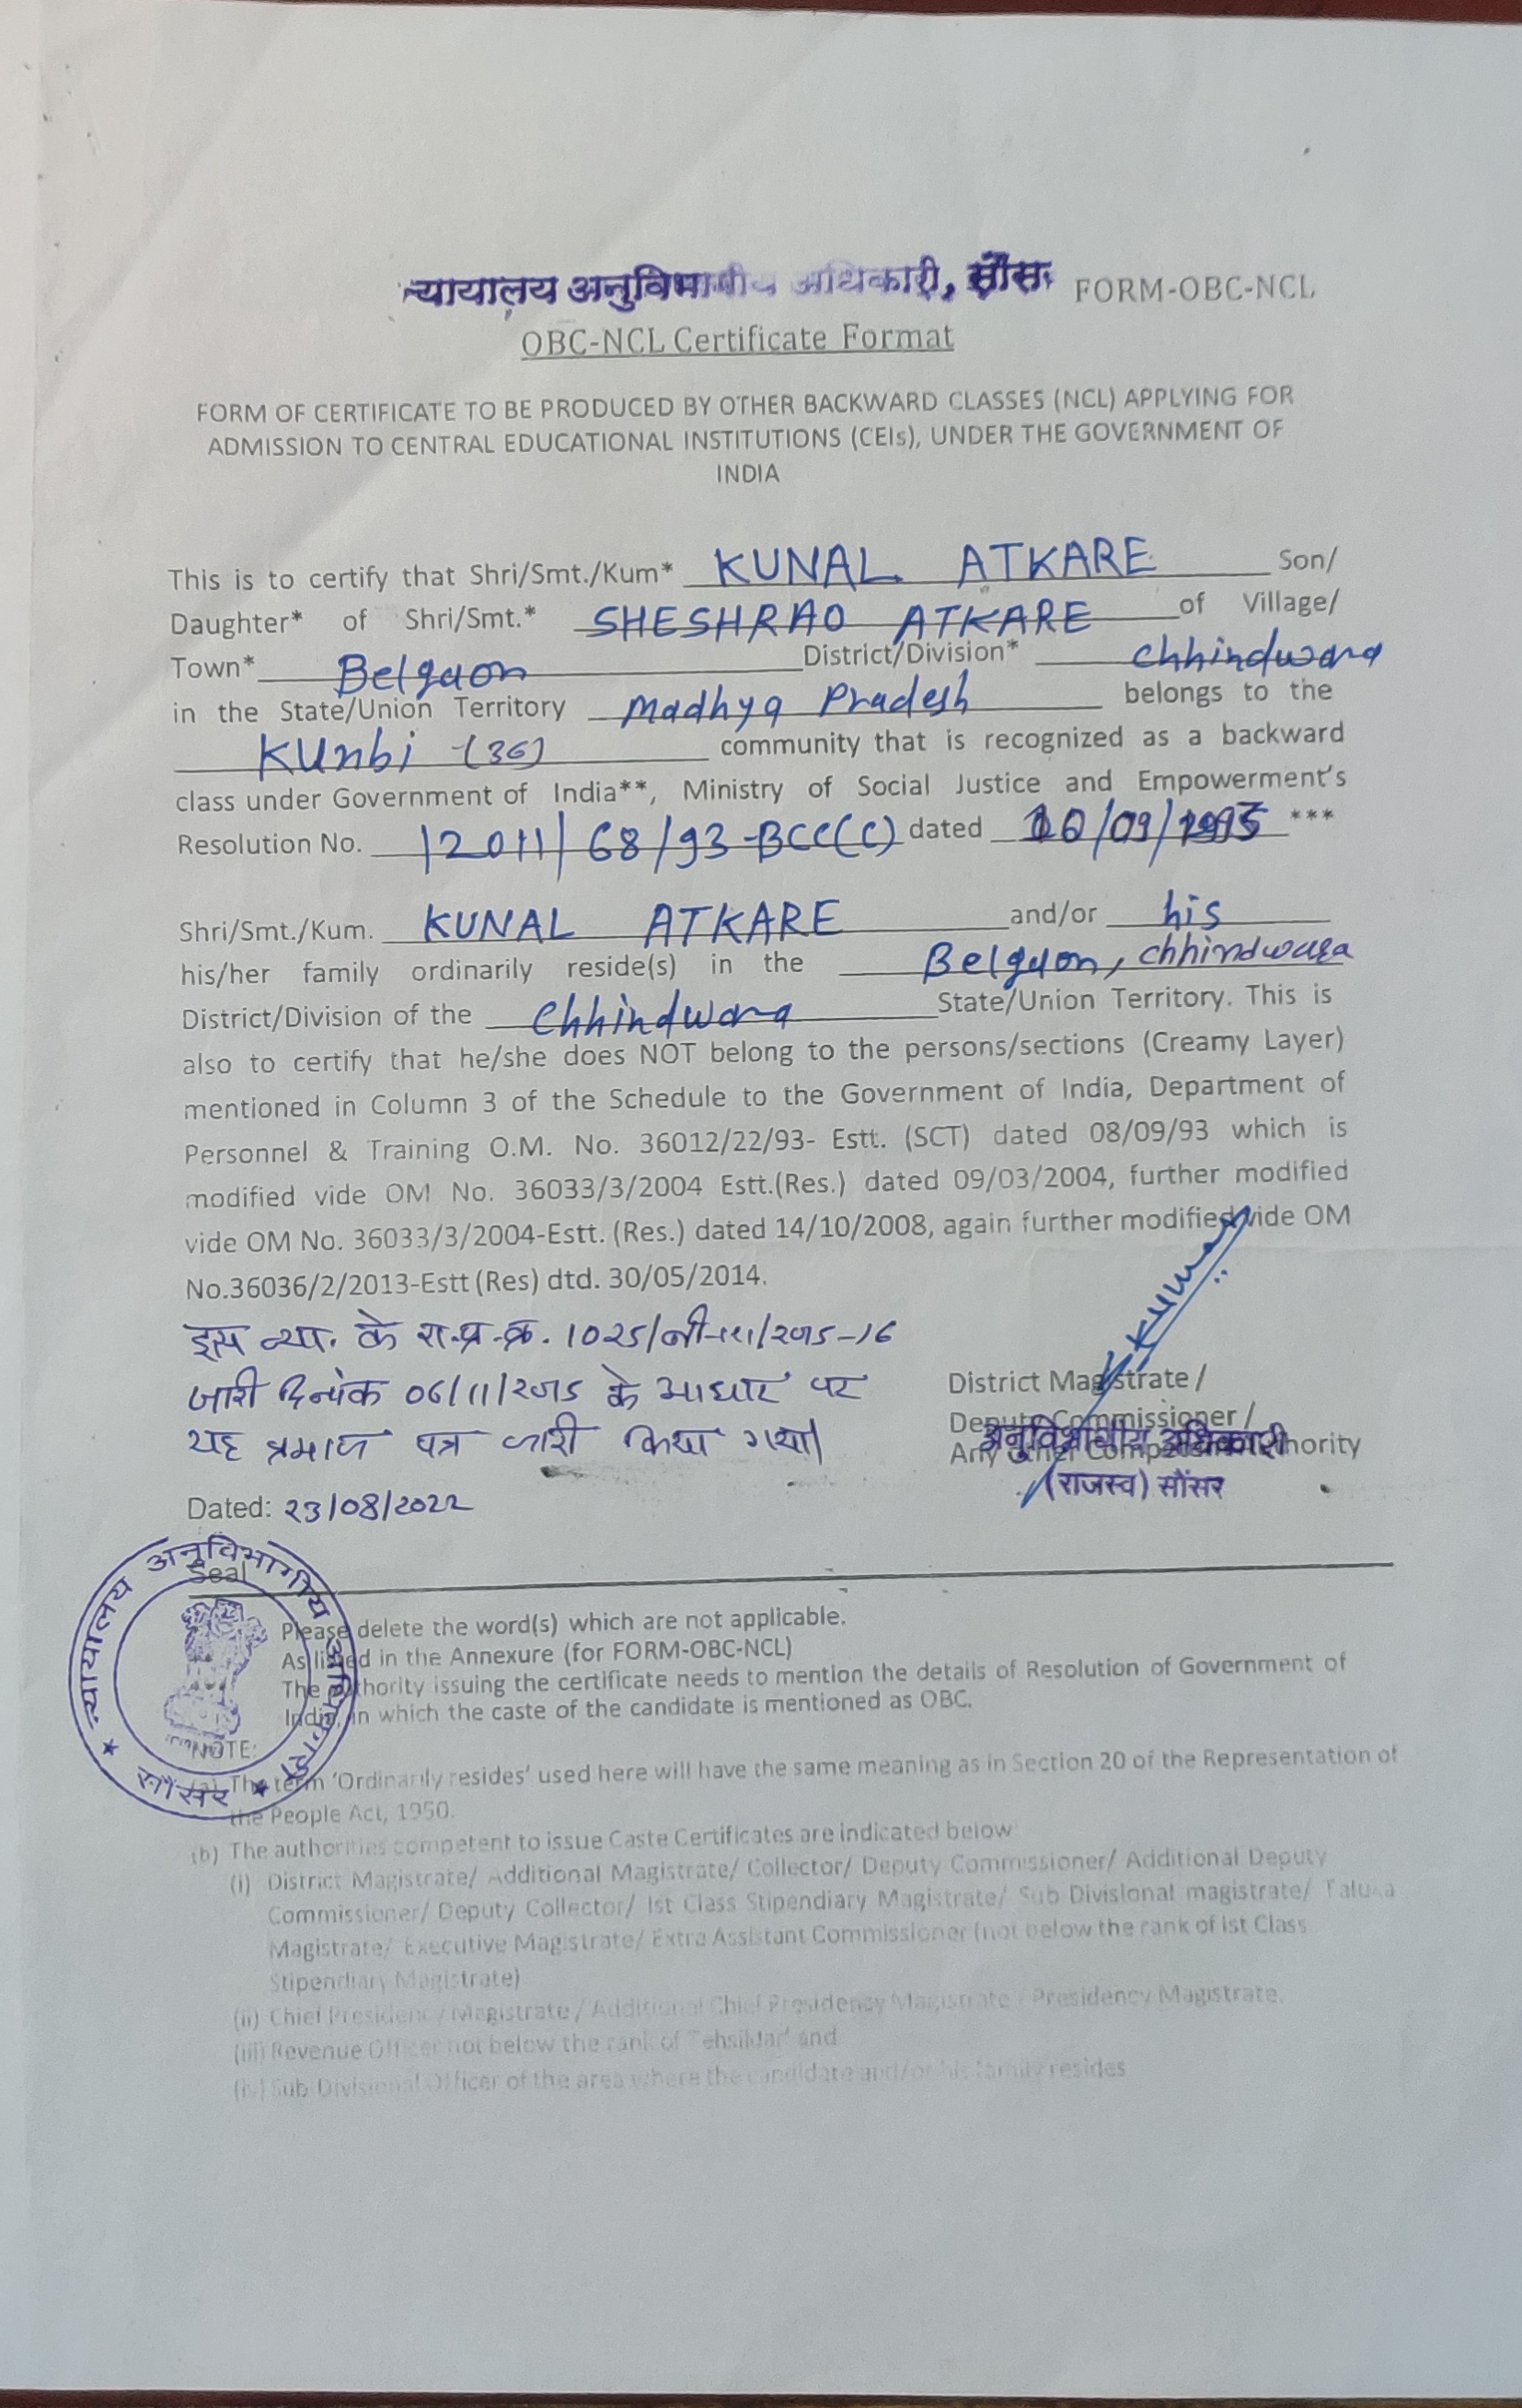 न्यायालय अनुविभागीय अधिकारी, सौंसर FORM-OBC-NCL
OBC-NCL Certificate Format
FORM OF CERTIFICATE TO BE PRODUCED BY OTHER BACKWARD CLASSES (NCL) APPLYING FOR
ADMISSION TO CENTRAL EDUCATIONAL INSTITUTIONS (CEIs), UNDER THE GOVERNMENT OF
INDIA
This is to certify that Shri/Smt./Kum* KUNAL ATKARE Son/
Daughter* of Shri/Smt.* SHESHRAO ATKARE of Village/
Town* Belgaon District/Division* Chhindwara
in the State/Union Territory Madhya Pradesh belongs to the
KUnbi (36) community that is recognized as a backward
class under Government of India**, Ministry of Social Justice and Empowerment's
Resolution No. 12011/68/93-BCC(C) dated 10/09/1993 ***
Shri/Smt./Kum. KUNAL ATKARE and/or his
his/her family ordinarily reside(s) in the Belgaon, chhindwara
District/Division of the Chhindwara State/Union Territory. This is
also to certify that he/she does NOT belong to the persons/sections (Creamy Layer)
mentioned in Column 3 of the Schedule to the Government of India, Department of
Personnel & Training O.M. No. 36012/22/93- Estt. (SCT) dated 08/09/93 which is
modified vide OM No. 36033/3/2004 Estt.(Res.) dated 09/03/2004, further modified
vide OM No. 36033/3/2004-Estt. (Res.) dated 14/10/2008, again further modified vide OM
No.36036/2/2013-Estt (Res) dtd. 30/05/2014.
इस न्या. के रा.प्र.क्र. 1025/बी-121/2015-16
जारी दिनांक 06/11/2015 के आधार पर
यह प्रमाण पत्र जारी किया गया|
District Magistrate /
Deputy Commissioner /
Any Other Competent Authority
अनुविभागीय अधिकारी
(राजस्व) सौंसर
Dated: 23/08/2022
Seal
न्यायालय अनुविभागीय अधिकारी
★ सौंसर ★
Please delete the word(s) which are not applicable.
As listed in the Annexure (for FORM-OBC-NCL)
The authority issuing the certificate needs to mention the details of Resolution of Government of
India, in which the caste of the candidate is mentioned as OBC.
NOTE:
(a) The term 'Ordinarily resides' used here will have the same meaning as in Section 20 of the Representation of
the People Act, 1950.
(b) The authorities competent to issue Caste Certificates are indicated below:
(i) District Magistrate/ Additional Magistrate/ Collector/ Deputy Commissioner/ Additional Deputy
Commissioner/ Deputy Collector/ Ist Class Stipendiary Magistrate/ Sub Divisional magistrate/ Taluka
Magistrate/ Executive Magistrate/ Extra Assistant Commissioner (not below the rank of Ist Class
Stipendiary Magistrate)
(ii) Chief Presidency Magistrate / Additional Chief Presidency Magistrate / Presidency Magistrate.
(iii) Revenue Officer not below the rank of Tehsildar' and
(iv) Sub Divisional Officer of the area where the candidate and/or his family resides